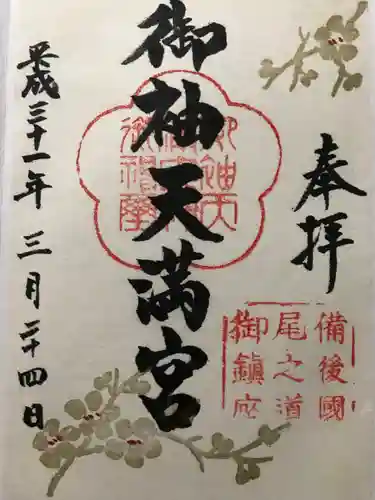 奉拝
備後國
尾之道
御鎮座
御袖天満宮
平成三十一年三月二十四日